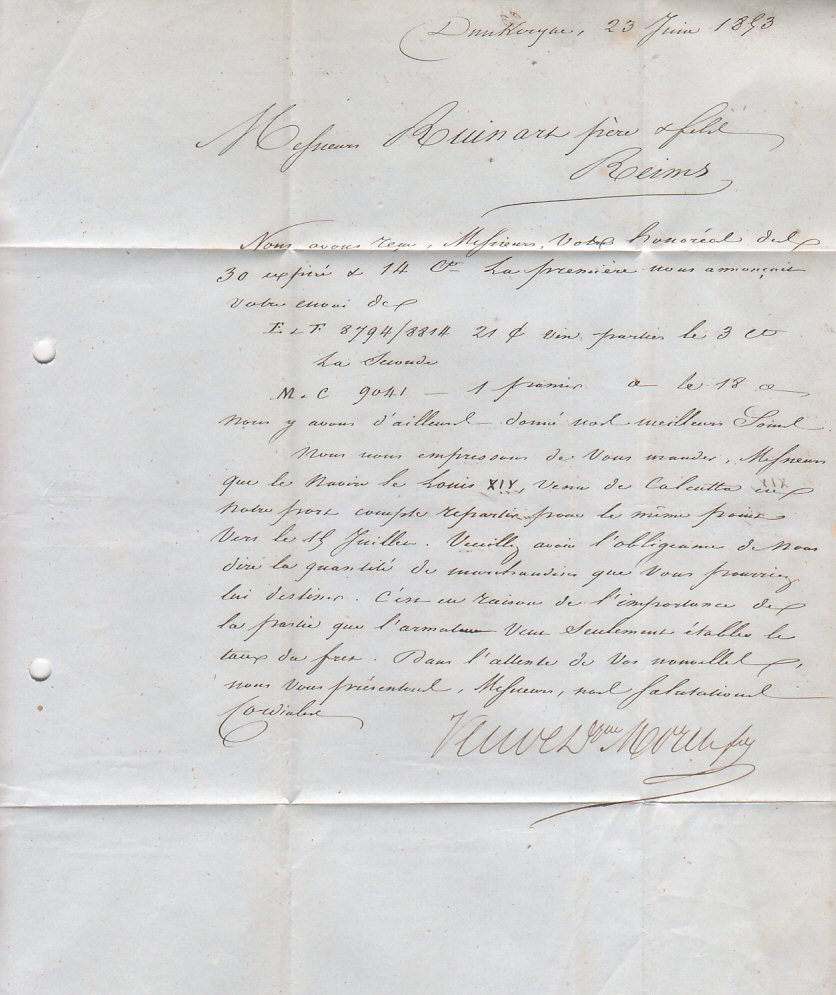 Dunkerque, 23 Juin 1853
Messieurs Ruinart père & fils
Reims
Nous avons reçu, Messieurs, vos honorées des
30 expiré & 14 Ct. La première nous annonçait
votre envoi de
E & F 8794/8814 21 C/ vin parties le 3 Ct
La Seconde
M & C 9041 — 1 panier d° le 18 d°
Nous y avons d'ailleurs donné nos meilleurs Soins.
Nous nous empressons de Vous mander, Messieurs
que le Navire le Louis XIV, venu de Calcutta en
Notre port compte repartir pour le même point
Vers le 15 Juillet. Veuillez avoir l'obligeance de Nous
dire la quantité de marchandises que Vous pourriez
lui destiner. C'est en raison de l'importance de
la partie que l'armateur Veut Seulement établir le
taux du fret. Dans l'attente de Vos nouvelles,
nous Vous présentons, Messieurs, nos Salutations
Cordiales
Veuve Dque Morel